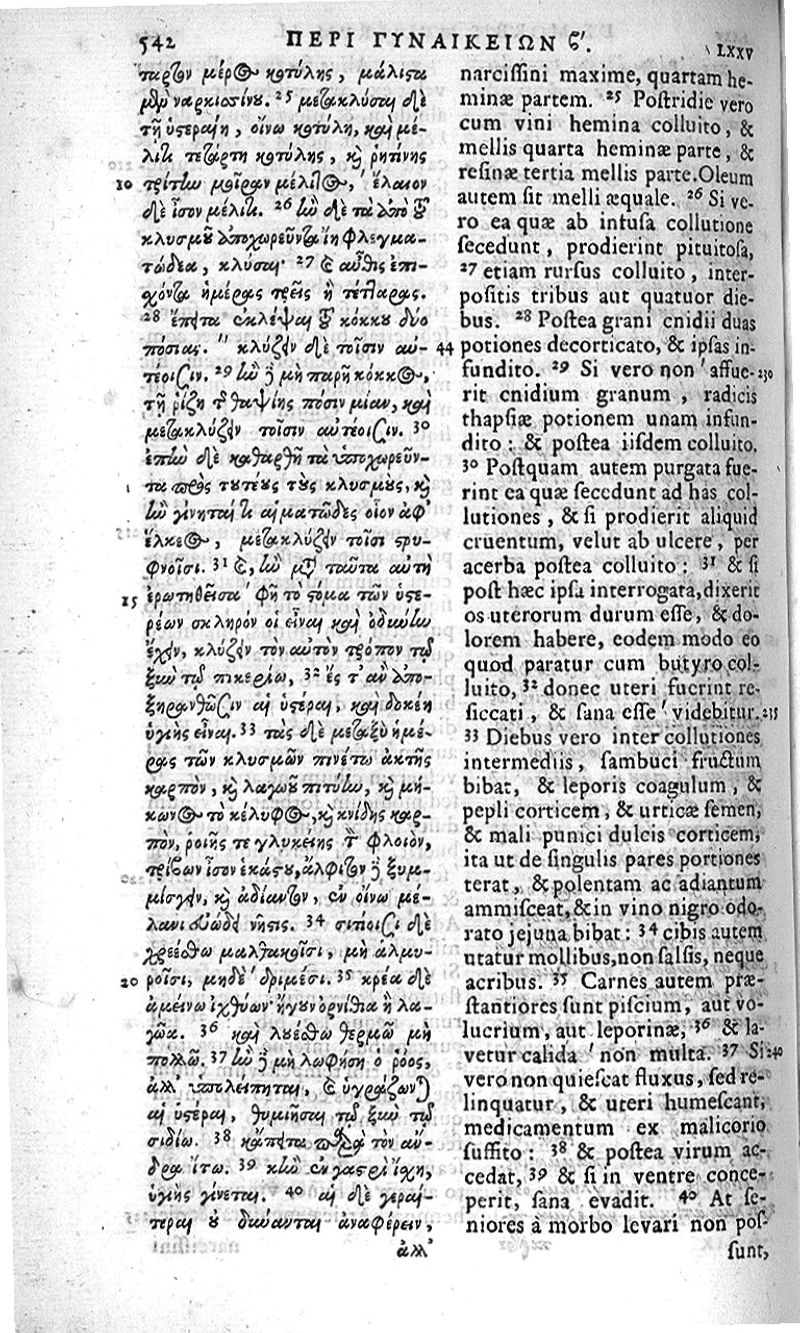 542 ΠΕΡΙ ΓΥΝΑΙΚΕΙΩΝ ς´. LXXV
ταρτον μέρος κοτύλης, μάλιστα
μὲν ναρκισσίνου. 25 μετακλύσαι δὲ
τῇ ὑστεραίῃ, οἴνω κοτύλη, καὶ μέ-
λιτι τετάρτη κοτύλης, κ ῥητίνης
10 τρίτην μοῖραν μέλιτος, ἔλαιον
δὲ ἶσον μέλιτι. 26 ἢν δὲ τὰ ἀπὸ τοῦ
κλυσμοῦ ἀποχωρεῦντα ἴῃ φλεγμα-
τώδεα, κλύσαι· 27 καὶ αὖθις ἐπι-
χόντα ἡμέρας τρεῖς ἢ τέτταρας.
28 ἔπειτα ἐκλέψαι τοῦ κόκκου δύο
πόσιας. κλύζειν δὲ τοῖσιν αὐ- 44
τέοισιν. 29 ἢν δὲ μὴ παρῇ κόκκος,
τῇ ῥίζῃ τῆς θαψίης πόσιν μίαν, καὶ
μετακλύζειν τοῖσιν αὐτέοισιν. 30
ἐπὴν δὲ καθαρθῇ τὰ ὑποχωρεῦν-
τα πρὸς τουτέους τοὺς κλυσμοὺς, κ
ἢν γίνηταί τι αἱματῶδες οἷον ἀφ'
ἕλκεος, μετακλύζειν τοῖσι στρυ-
φνοῖσι. 31 καὶ, ἢν μετὰ ταῦτα αὐτὴ
15 ἐρωτηθεῖσα φῇ τὸ στόμα τῶν ὑστε-
ρέων σκληρόν οἱ εἶναι καὶ ὀδύνην
ἔχειν, κλύζειν τὸν αὐτὸν τρόπον τῷ
ξὺν τῷ πικερίω, 32 ἔς τ' ἂν ἀπο-
ξηρανθῶσιν αἱ ὑστέραι, καὶ δοκέῃ
ὑγιὴς εἶναι. 33 τὰς δὲ μεταξὺ ἡμέ-
ρας τῶν κλυσμῶν πινέτω ἀκτῆς
καρπὸν, κ λαγωοῦ πιτύην, κ μή-
κωνος τὸ κέλυφος, κ κνίδης καρ-
πὸν, ροιῆς τε γλυκείης τὸν φλοιὸν,
τρίβων ἶσον ἑκάστου, ἄλφιτον δὲ ξυμ-
μίσγειν, κ ἀδίαντον, ἐν οἴνω μέ-
λανι εὐώδει νῆστις. 34 σιτίοισι δὲ
χρεέσθω μαλθακοῖσι, μὴ ἁλμυ-
20 ροῖσι, μηδὲ δριμέσι. 35 κρέα δὲ
ἀμείνω ἰχθύων ἤγουν ὀρνίθια ἢ λα-
γῶα. 36 καὶ λουέσθω θερμῶ μὴ
πολλῶ. 37 ἢν δὲ μὴ λωφήσῃ ὁ ῥόος,
ἀλλ' ὑπολείπηται, καὶ ὑγράζωνται
αἱ ὑστέραι, θυμιῆσαι τῷ ξὺν τῷ
σιδίω. 38 κἄπειτα παρὰ τὸν ἄν-
δρα ἴτω. 39 κἢν ἐν γαστρὶ ἴσχῃ,
ὑγιὴς γίνεται. 40 αἱ δὲ γεραί-
τεραι οὐ δύνανται ἀναφέρειν,
ἀλλ'
narcissini maxime, quartam he-
minæ partem. 25 Postridie vero
cum vini hemina colluito, &
mellis quarta heminæ parte, &
resinæ tertia mellis parte. Oleum
autem sit melli æquale. 26 Si ve-
ro ea quæ ab infusa collutione
secedunt, prodierint pituitosa,
27 etiam rursus colluito, inter-
positis tribus aut quatuor die-
bus. 28 Postea grani cnidii duas
potiones decorticato, & ipsas in-
fundito. 29 Si vero non affue- 230
rit cnidium granum, radicis
thapsiæ potionem unam infun-
dito: & postea iisdem colluito.
30 Postquam autem purgata fue-
rint ea quæ secedunt ad has col-
lutiones, & si prodierit aliquid
cruentum, velut ab ulcere, per
acerba postea colluito: 31 & si
post hæc ipsa interrogata, dixerit
os uterorum durum esse, & do-
lorem habere, eodem modo eo
quod paratur cum butyro col-
luito, 32 donec uteri fuerint re-
siccati, & sana esse videbitur. 235
33 Diebus vero inter collutiones
intermediis, sambuci fructum
bibat, & leporis coagulum, &
pepli corticem, & urticæ semen,
& mali punici dulcis corticem,
ita ut de singulis pares portiones
terat, & polentam ac adiantum
ammisceat, & in vino nigro odo-
rato jejuna bibat: 34 cibis autem
utatur mollibus, non salsis, neque
acribus. 35 Carnes autem præ-
stantiores sunt piscium, aut vo-
lucrium, aut leporinæ, 36 & la-
vetur calida non multa. 37 Si 240
vero non quiescat fluxus, sed re-
linquatur, & uteri humescant,
medicamentum ex malicorio
suffito: 38 & postea virum ac-
cedat, 39 & si in ventre conce-
perit, sana evadit. 40 At se-
niores à morbo levari non pos-
sunt,